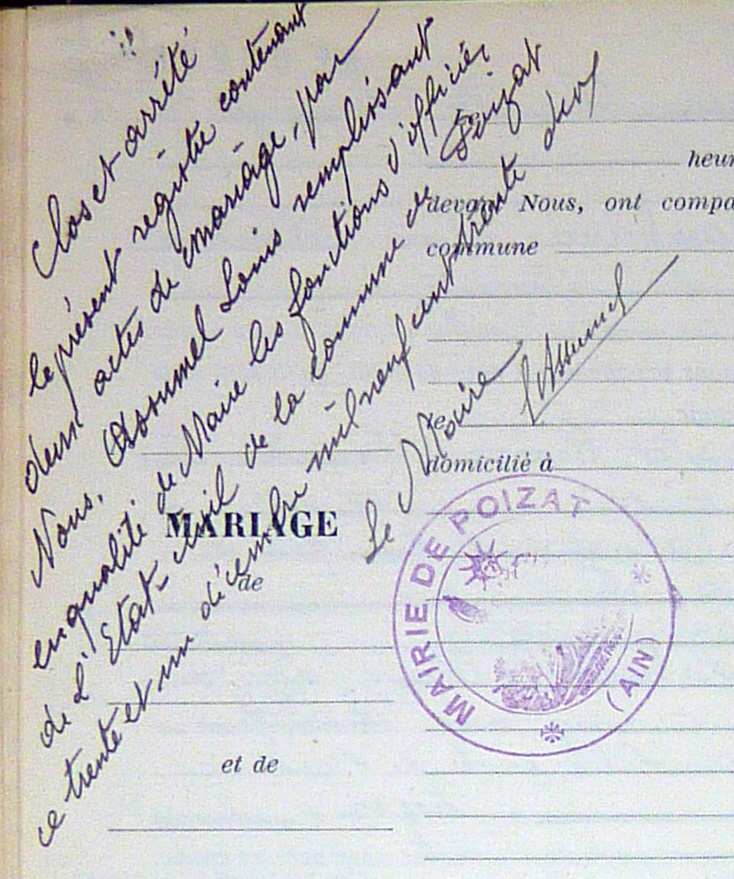 Clos et arrêté
le présent registre contenant
deux actes de mariage, par
Nous, Assumel Louis remplissant
en qualité de Maire les fonctions d'officier
de l'Etat-civil de la commune de Poizat
ce trente et un décembre mil neuf cent trente deux
Le Maire
L Assumel
Le
heur
devant Nous, ont compa
commune
le
domicilié à
MARIAGE
de
et de
MAIRIE DE POIZAT
(AIN)